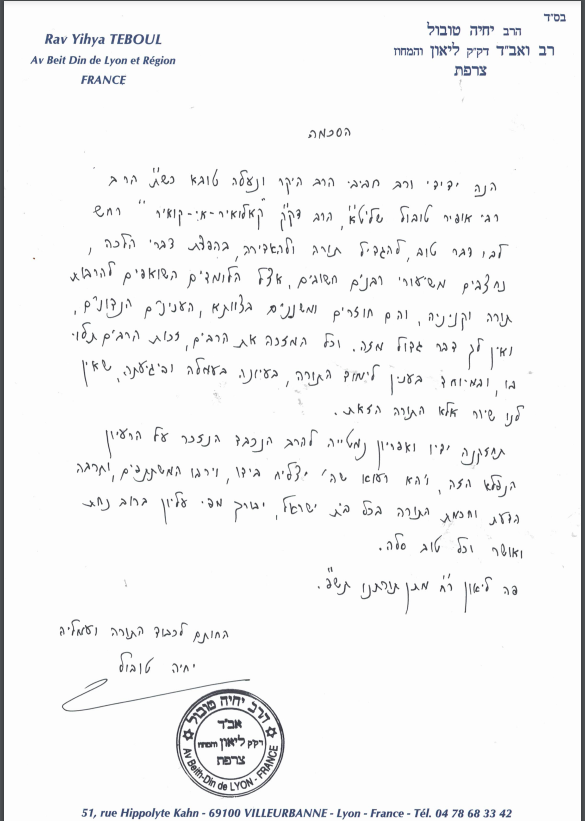 בס״ד
הרב יחיה טובול
רב ואב״ד דק״ק ליאון והמחוז
צרפת
Rav Yihya TEBOUL
Av Beit Din de Lyon et Région
FRANCE
הסכמה
הנה ידידי ורב חביבי הרב היקר ונעלה טובא כש״ת הרב
רבי אופיר טובול שליט״א, הרב דק״ק "קאלואיר-אי-קואיר" רחש
לבו דבר טוב, להגדיל תורה ולהאדירה, בהפצת דברי הלכה,
נחצבים משיעורי רבנים חשובים, אצל הלומדים השואפים להרבות
תורה וקניניה, והם חוזרים ומשננים בצוותא, הענינים הנדונים,
ואין לך דבר גדול מזה. וכל המזכה את הרבים, זכות הרבים תלוי
בו, ובמיוחד בענין לימוד התורה, בעיונה בעמלה וביגיעתה, שאין
לנו שיור אלא התורה הזאת.
תחזקנה ידיו ואפריון נמטייה להרב הנכבד הנזכר על הרעיון
הנפלא הזה, ויהא רעוא שה' יצליח בידו, וירבו המשתתפים, ותרבה
הדעת וחכמת התורה בכל בית ישראל, יבורך מפי עליון ברוב נחת
ואושר וכל טוב סלה.
פה ליאון מתן תורתנו
החותם לכבוד התורה ועמליה
יחיה טובול
הרב יחיה טובול
אב״ד
דק״ק ליאון והמחוז
צרפת
Av Beith-Din de LYON - FRANCE
51, rue Hippolyte Kahn - 69100 VILLEURBANNE - Lyon - France - Tél. 04 78 68 33 42